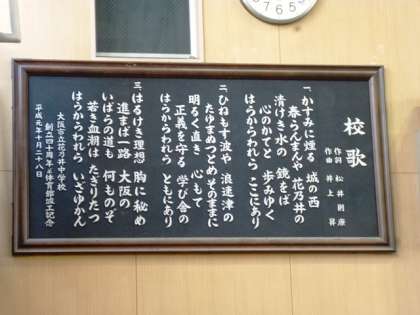 校歌
作詞 松井則康
作曲 井上昇
一、かすみに煙る 城の西
春らんまんや 花乃井の
清けき水の 鏡をば
心のかてと 歩みゆく
はらからわれら ここにあり
二、ひねもす波や 浪速津の
たゆまぬつとめ そのままに
明るく直き 心もて
正義を守る 学び舎の
はらからわれら ともにあり
三、はるけき理想 胸に秘め
進まば一路 大阪の
いばらの道も 何ものぞ
若き血潮は たぎりたつ
はらからわれら いざゆかん
大阪市立花乃井中学校
創立四十周年体育館竣工記念
平成元年十月二十八日